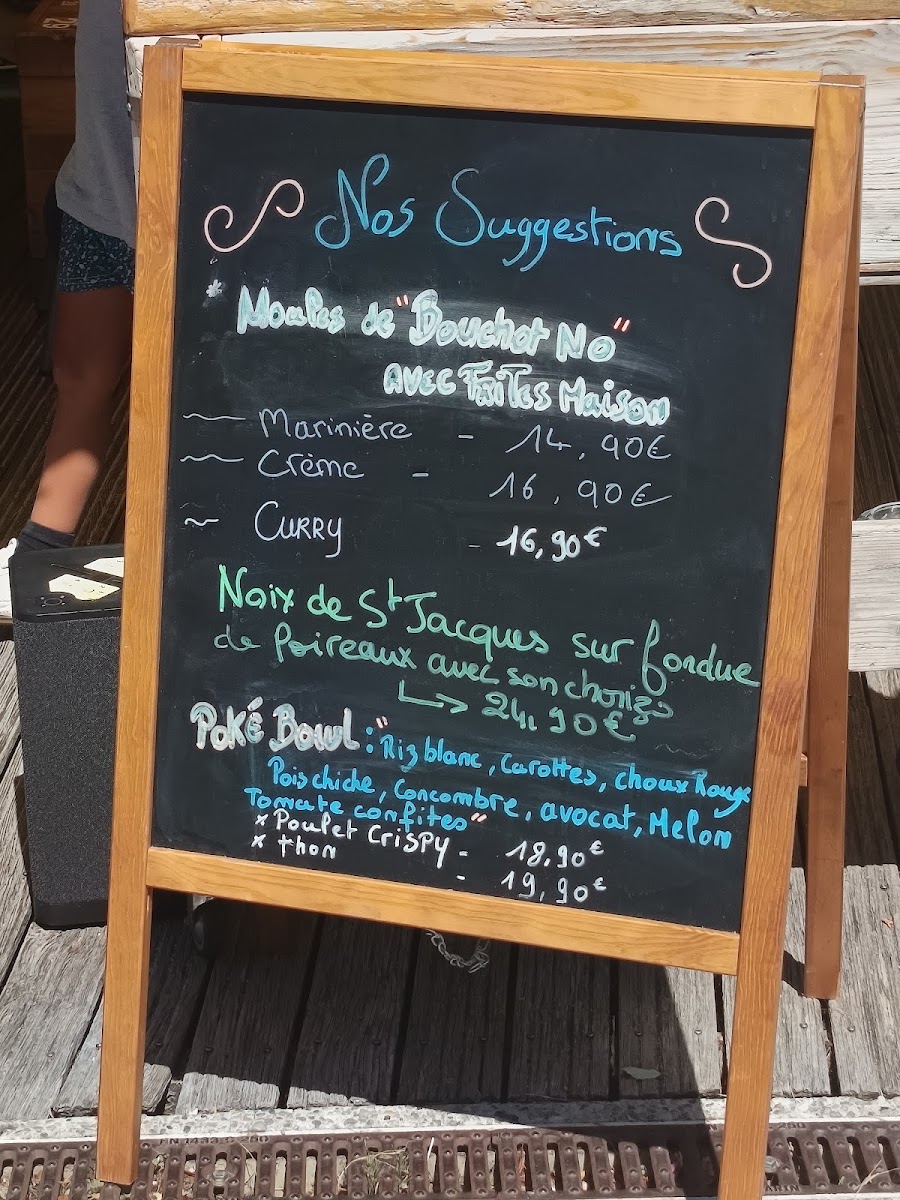 Nos Suggestions
* Moules de "Bouchot No"
AVEC FRITES MAISON
~ Marinière - 14,90€
~ Crème - 16,90€
~ CURRY - 16,90€
Noix de St Jacques sur fondue
de Poireaux avec son chorizo
↳ 24,90€
POKÉ BOWL : "Riz blanc, Carottes, choux Rouge
Pois chiche, Concombre, avocat, Melon
Tomate confites"
x Poulet CRISPY - 18,90€
x thon - 19,90€